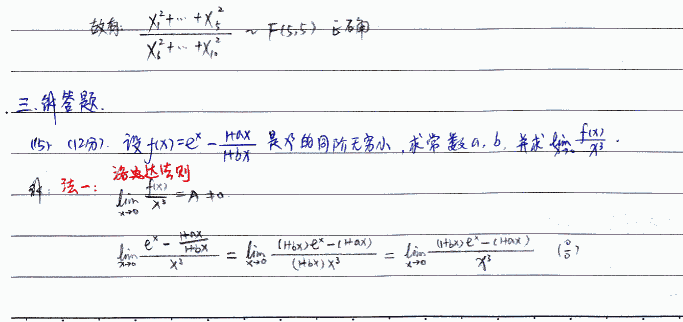 故有 (X₁²+⋯+X₅²)/(X₆²+⋯+X₁₀²) ~ F(5,5) 正确
三.解答题.
(15) (12分). 设 f(x)=e^x - (1+ax)/(1+bx) 是x³的同阶无穷小,求常数a,b,并求 lim_{x→0} f(x)/x³.
解: 法一: 洛必达法则
lim_{x→0} f(x)/x³ = A ≠ 0
lim_{x→0} (e^x - (1+ax)/(1+bx))/x³ = lim_{x→0} ((1+bx)e^x-(1+ax))/((1+bx)x³) = lim_{x→0} ((1+bx)e^x-(1+ax))/x³ (0/0)